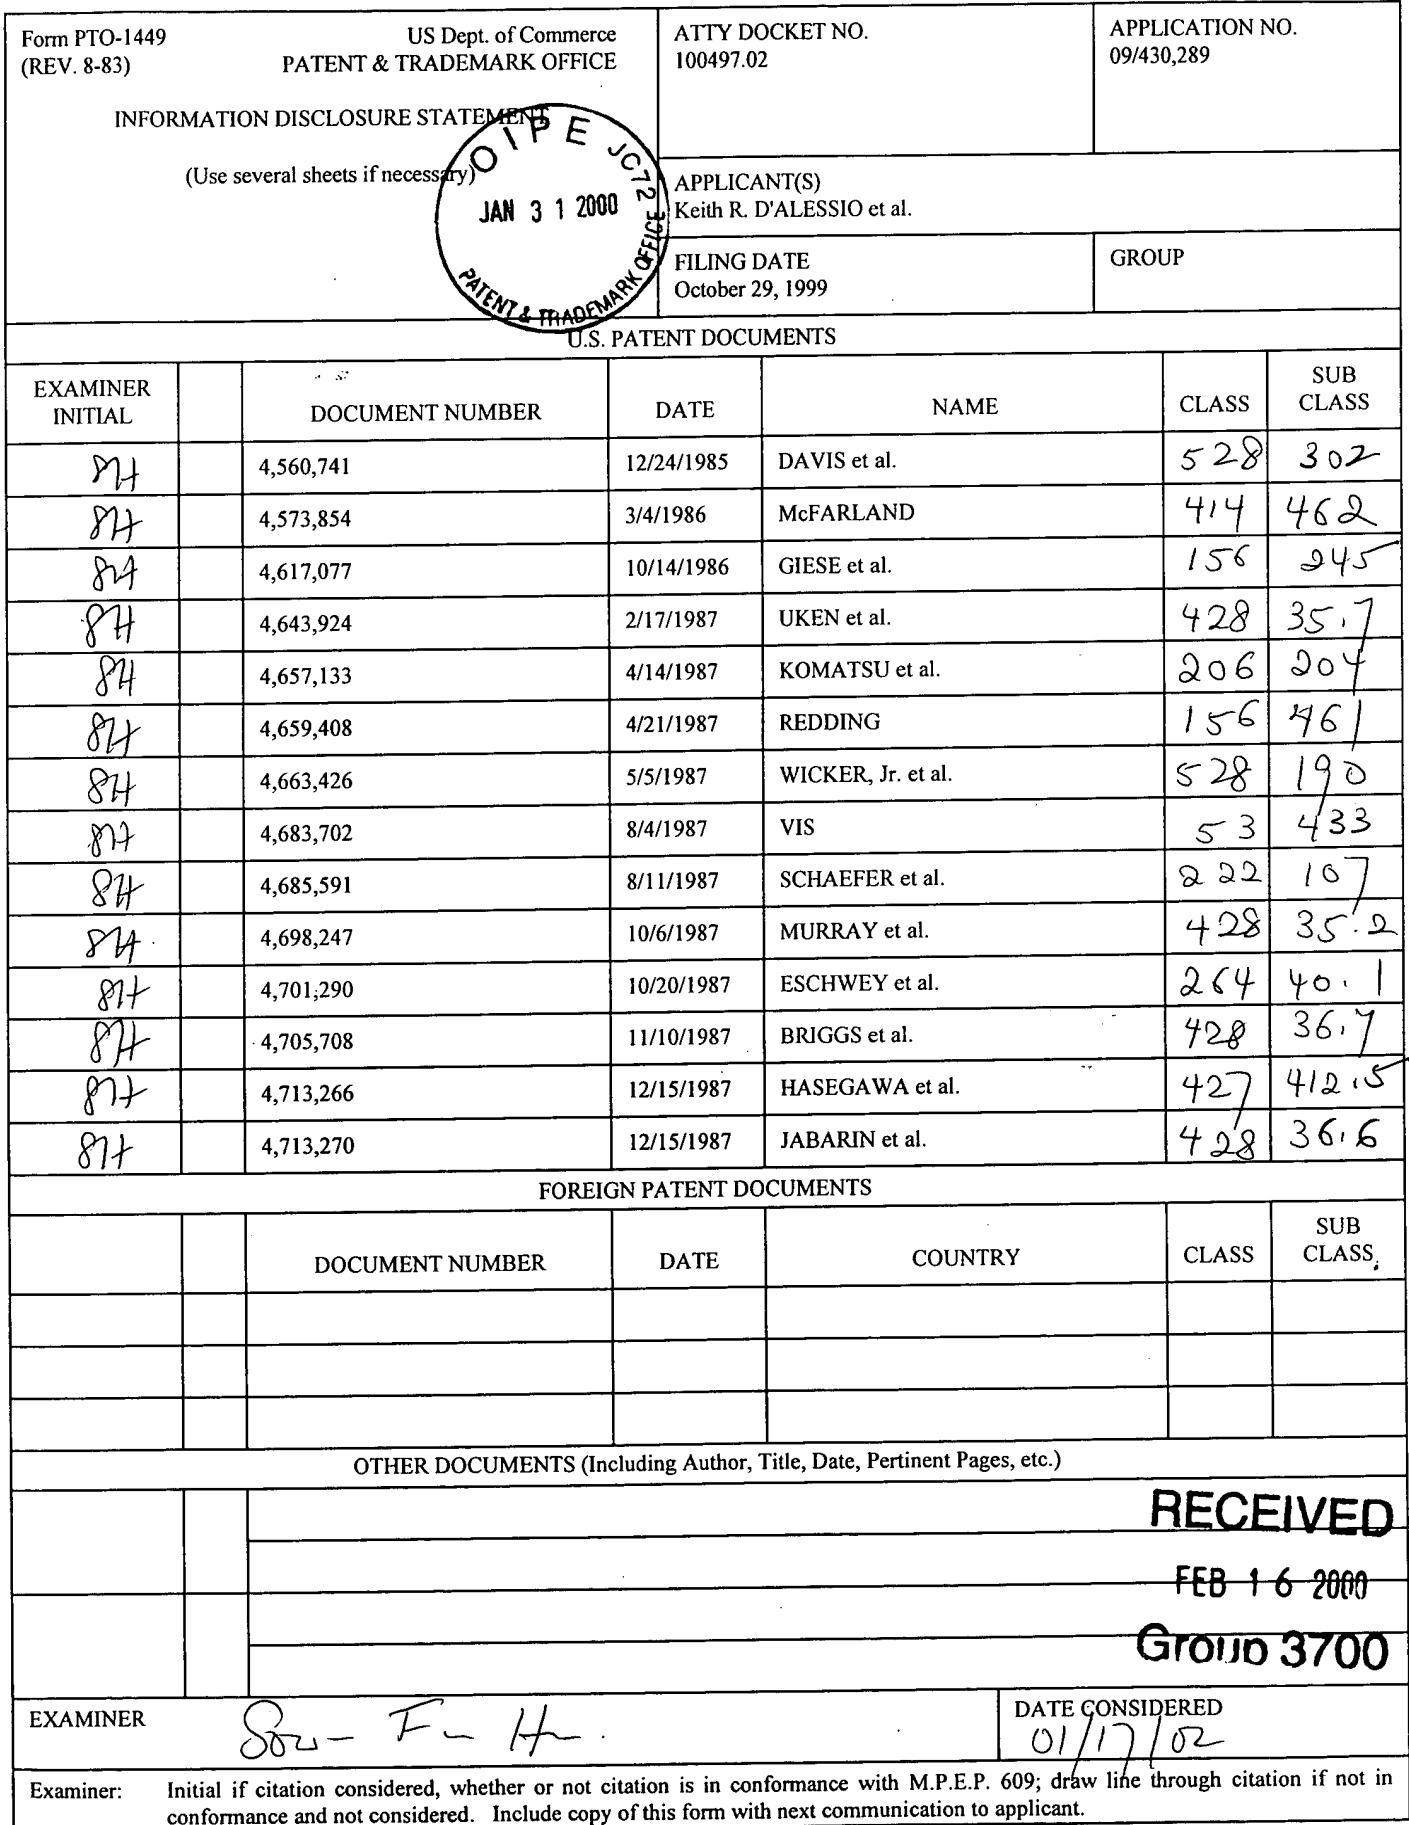 Form PTO-1449 US Dept. of Commerce
(REV. 8-83) PATENT & TRADEMARK OFFICE
INFORMATION DISCLOSURE STATEMENT
(Use several sheets if necessary)
OIPE JC72
JAN 31 2000
PATENT & TRADEMARK OFFICE
ATTY DOCKET NO.
100497.02
APPLICATION NO.
09/430,289
APPLICANT(S)
Keith R. D'ALESSIO et al.
FILING DATE
October 29, 1999
GROUP
U.S. PATENT DOCUMENTS
EXAMINER INITIAL DOCUMENT NUMBER DATE NAME CLASS SUB CLASS
4,560,741 12/24/1985 DAVIS et al. 528 302
4,573,854 3/4/1986 McFARLAND 414 462
4,617,077 10/14/1986 GIESE et al. 156 245
4,643,924 2/17/1987 UKEN et al. 428 35.7
4,657,133 4/14/1987 KOMATSU et al. 206 204
4,659,408 4/21/1987 REDDING 156 461
4,663,426 5/5/1987 WICKER, Jr. et al. 528 190
4,683,702 8/4/1987 VIS 53 433
4,685,591 8/11/1987 SCHAEFER et al. 222 107
4,698,247 10/6/1987 MURRAY et al. 428 35.2
4,701,290 10/20/1987 ESCHWEY et al. 264 40.1
4,705,708 11/10/1987 BRIGGS et al. 428 36.7
4,713,266 12/15/1987 HASEGAWA et al. 427 412.5
4,713,270 12/15/1987 JABARIN et al. 428 36.6
FOREIGN PATENT DOCUMENTS
DOCUMENT NUMBER DATE COUNTRY CLASS SUB CLASS
OTHER DOCUMENTS (Including Author, Title, Date, Pertinent Pages, etc.)
RECEIVED
FEB 16 2000
Group 3700
EXAMINER
DATE CONSIDERED
01/17/02
Examiner: Initial if citation considered, whether or not citation is in conformance with M.P.E.P. 609; draw line through citation if not in
conformance and not considered. Include copy of this form with next communication to applicant.